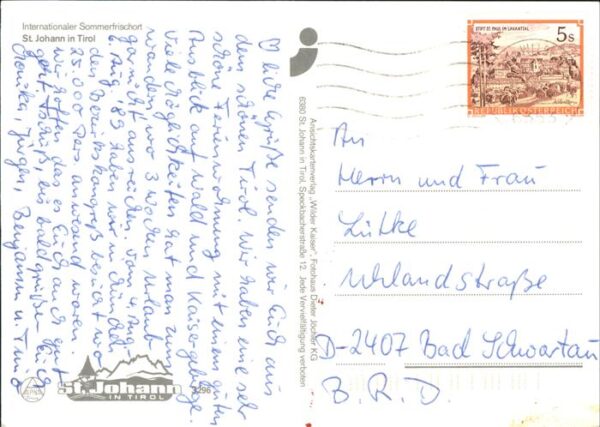 Internationaler Sommerfrischort
St. Johann in Tirol
liebe Grüße senden wir Euch aus
dem schönen Tirol. Wir haben eine sehr
schöne Ferienwohnung mit einem guten
Ausblick auf Wald und Kaisergebirge.
Viele Möglichkeiten hat man zum
wandern, wo 3 Wochen Urlaub
garnicht ausreichen. Vom 4. Aug. -
6. Aug. '89 haben wir in München
den Bezirkskongreß besucht wo
25.000 Pers. anwesend waren.
Wir hoffen das es Euch auch gut
geht. Tschüß, bis bald grüßen Euch
Monika, Jürgen, Benjamin u.
Ansichtskartenverlag „Wilder Kaiser“, Fotohaus Dieter Jöchler KG
6380 St. Johann in Tirol, Speckbacherstraße 12. Jede Vervielfältigung verboten
STIFT ST. PAUL IM LAVANTTAL
5s
REPUBLIK ÖSTERREICH
An
Herrn und Frau
Lütke
Uhlandstraße
D-2407 Bad Schwartau
B.R.D.
St. Johann
IN TIROL
3296